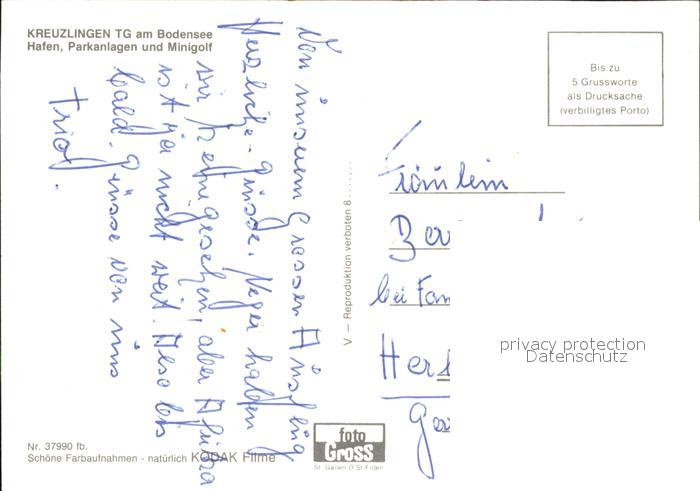 KREUZLINGEN TG am Bodensee
Hafen, Parkanlagen und Minigolf
Von unserem Grossen Ausflug
Herzliche Grüsse. Neger halten
wir keine gesehen, aber Afrika
ist ja nicht weit. Also bis
bald. Grüsse von uns
Trio.
V — Reproduktion verboten 8.......
Bis zu
5 Grussworte
als Drucksache
(verbilligtes Porto)
Fräulein
Ber
bei Fam
Hers
privacy protection
Datenschutz
Nr. 37990 fb.
Schöne Farbaufnahmen - natürlich KODAK Filme
foto
Gross
St. Gallen O St. Fiden